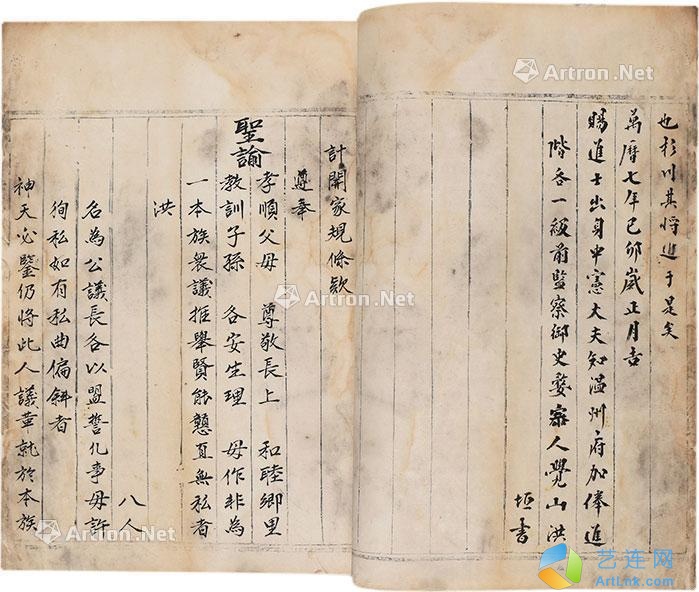 也彬川其將進于是矣
萬曆七年已卯歲正月吉
賜進士出身中憲大夫知溫州府加俸進
階各一級前監察御史婺源人覺山洪
垣書
計開家規條欵
尊奉
聖諭
孝順父母 尊敬長上 和睦鄉里
教訓子孫 各安生理 毋作非為
一本族衆議推舉賢能戇直無私者
洪
八人
名為公議長各以盟誓凡事毋許
徇私如有私曲偏斜者
神天必鑒仍將此人議革就於本族
Artron.Net
Artron.Net
Artron.Net
Artron.Net
Artron.Net
艺连网
ArtLnk.com